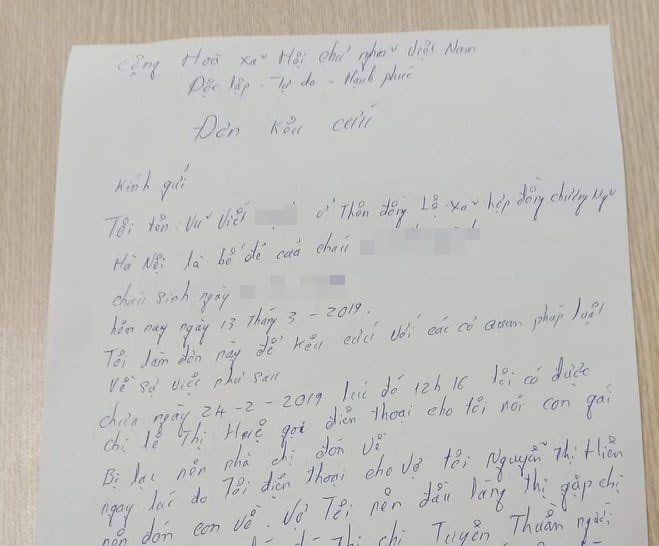 Cộng Hoà xã Hội chủ nghĩa việt Nam
Độc lập - Tự do - Hạnh phúc
Đơn kêu cứu
Kính gửi
Tôi tên: Vũ Viết ở Thôn đồng Lệ - xã hợp đồng chương Mỹ
Hà Nội là bố đẻ của cháu
cháu sinh ngày
hôm nay ngày 13 Tháng 3 - 2019.
Tôi làm đơn này để kêu cứu với các cơ quan pháp luật
Về sự việc như sau
chưa ngày 24 - 2 - 2019 lúc đó 12h 16 tôi có được
chị lê Thị Huệ gọi điện thoại cho tôi nói con gái
Bị lạc nên nhà chị đón về
ngay lúc đo Tôi điện thoại cho vợ tôi Nguyễn Thị Hiền
nên đón con về. Vợ Tôi nên đầu làng thị gặp chị
Thị chị Tuyển Thuần ngồi